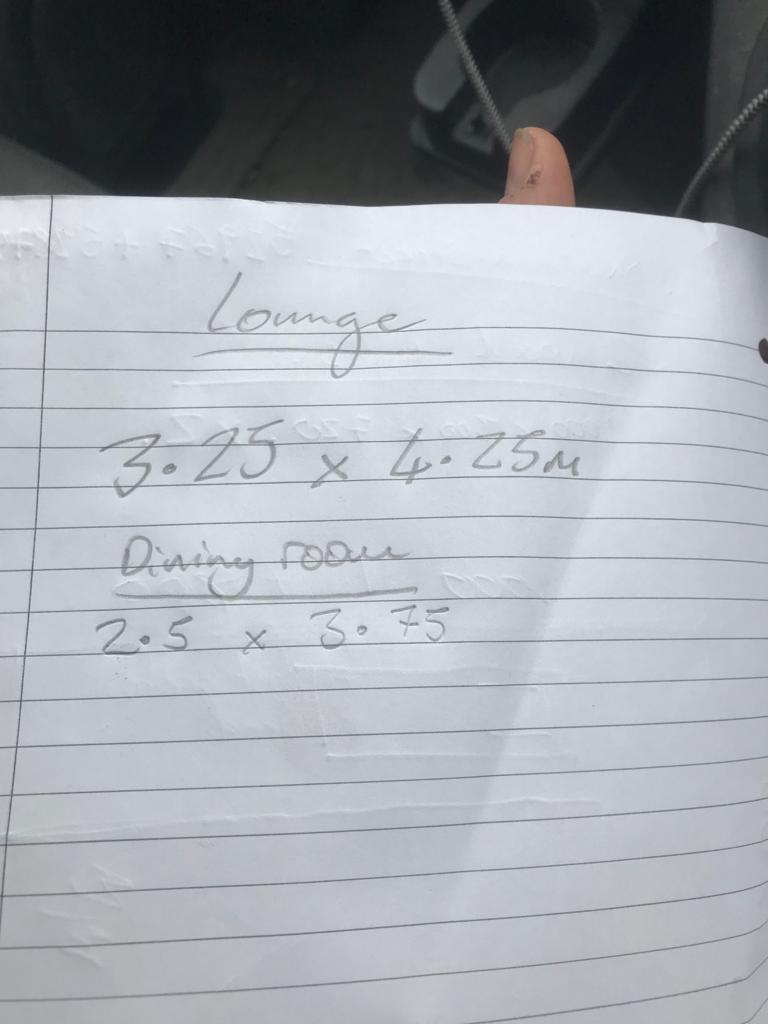 Lounge
3.25 x 4.25m
Dining room
2.5 x 3.75